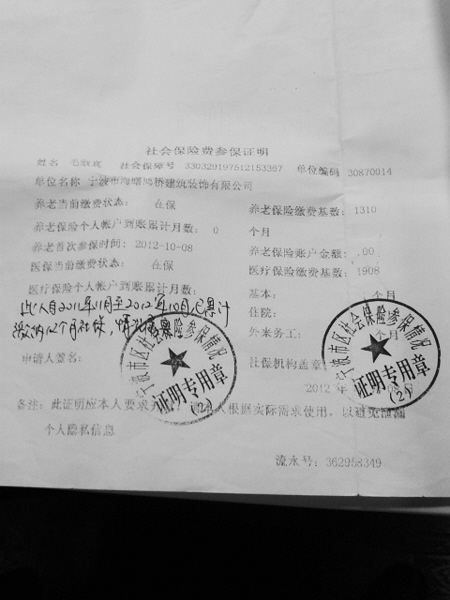 社会保险费参保证明
姓名 毛 社会保障号 330329197512153367 单位编码 30870014
单位名称 宁波市海曙鸿桥建筑装饰有限公司
养老当前缴费状态: 在保 养老保险缴费基数: 1310
养老保险个人帐户到账累计月数: 0 个月
养老首次参保时间: 2012-10-08 养老保险账户金额: .00
医保当前缴费状态: 在保 医疗保险缴费基数: 1908
医疗保险个人帐户到账累计月数: 基本: 个月
此人自2011年11月至2012年10月已累计 住院: 个月
缴纳12个月社保,情况属实 外来务工: 个月
申请人签名: 社保机构盖章
2012 年
宁波市区社会保险参保情况
证明专用章
(2)
宁波市区社会保险参保情况
证明专用章
(2)
备注: 此证明应本人要求 人根据实际需求使用, 以避免泄漏
个人隐私信息
流水号: 362958349